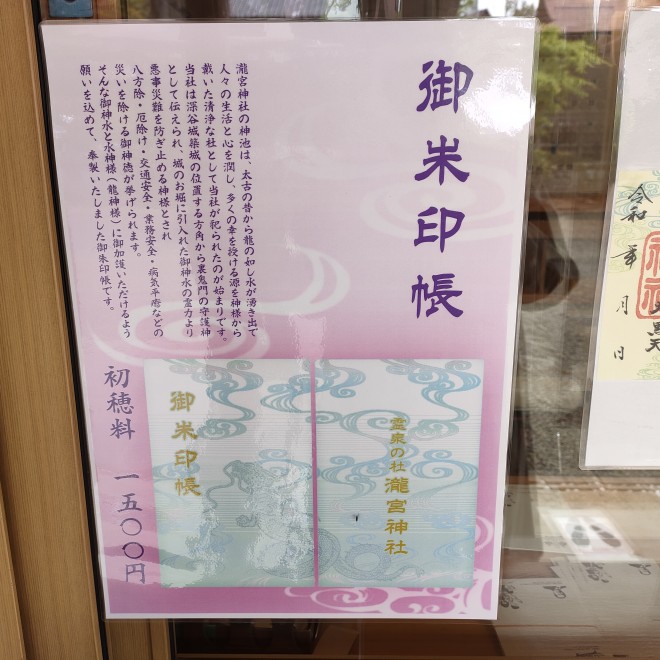 御朱印帳
瀧宮神社の神池は、太古の昔から龍の如し水が湧き出で
人々の生活と心を潤し、多くの幸を授ける源を神様から
戴いた清浄な社として当社が祀られたのが始まりです。
当社は深谷城築城の位置する方角から裏鬼門の守護神
として伝えられ、城のお堀に引入れた御神水の霊力より
悪事災難を防ぎ止める神様とされ
八方除・厄除け・交通安全・業務安全・病気平癒などの
災いを除ける御神徳が挙げられます。
そんな御神水と水神様(龍神様)に御加護いただけるよう
願いを込めて、奉製いたしました御朱印帳です。
初穂料 一五〇〇円
霊泉の社 瀧宮神社
御朱印帳
令和 年 月 日